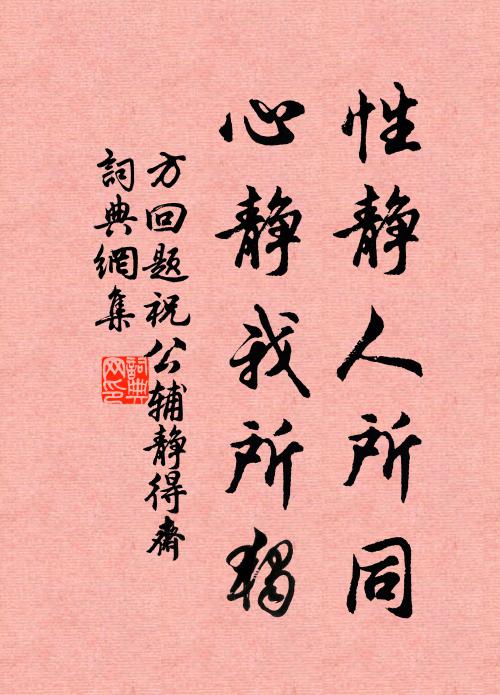 性静人所同
心静我所獨
方回题祝公辅静得齋
詞典網集
詞典網印